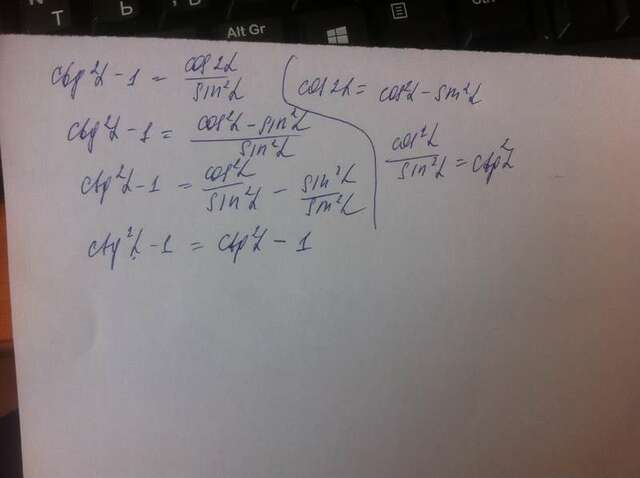 ctg²α - 1 = cos2α / sin²α
ctg²α - 1 = (cos²α - sin²α) / sin²α
ctg²α - 1 = cos²α / sin²α - sin²α / sin²α
ctg²α - 1 = ctg²α - 1
cos2α = cos²α - sin²α
cos²α / sin²α = ctg²α
Alt Gr
T
Ь